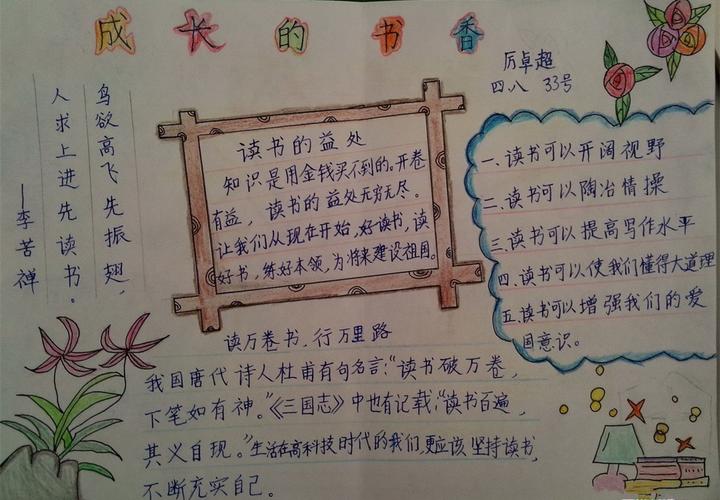 成长的书香
厉卓超
四.八 33号
鸟欲高飞先振翅，
人求上进先读书。
——李苦禅
读书的益处
知识是用金钱买不到的。开卷
有益，读书的益处无穷无尽。
让我们从现在开始，好读书，读
好书，练好本领，为将来建设祖国。
一、读书可以开阔视野
二、读书可以陶冶情操
三、读书可以提高写作水平
四、读书可以使我们懂得大道理
五、读书可以增强我们的爱
国意识。
读万卷书，行万里路
我国唐代诗人杜甫有句名言：“读书破万卷，
下笔如有神。”《三国志》中也有记载：“读书百遍，
其义自现。”生活在高科技时代的我们，更应该坚持读书，
不断充实自己。